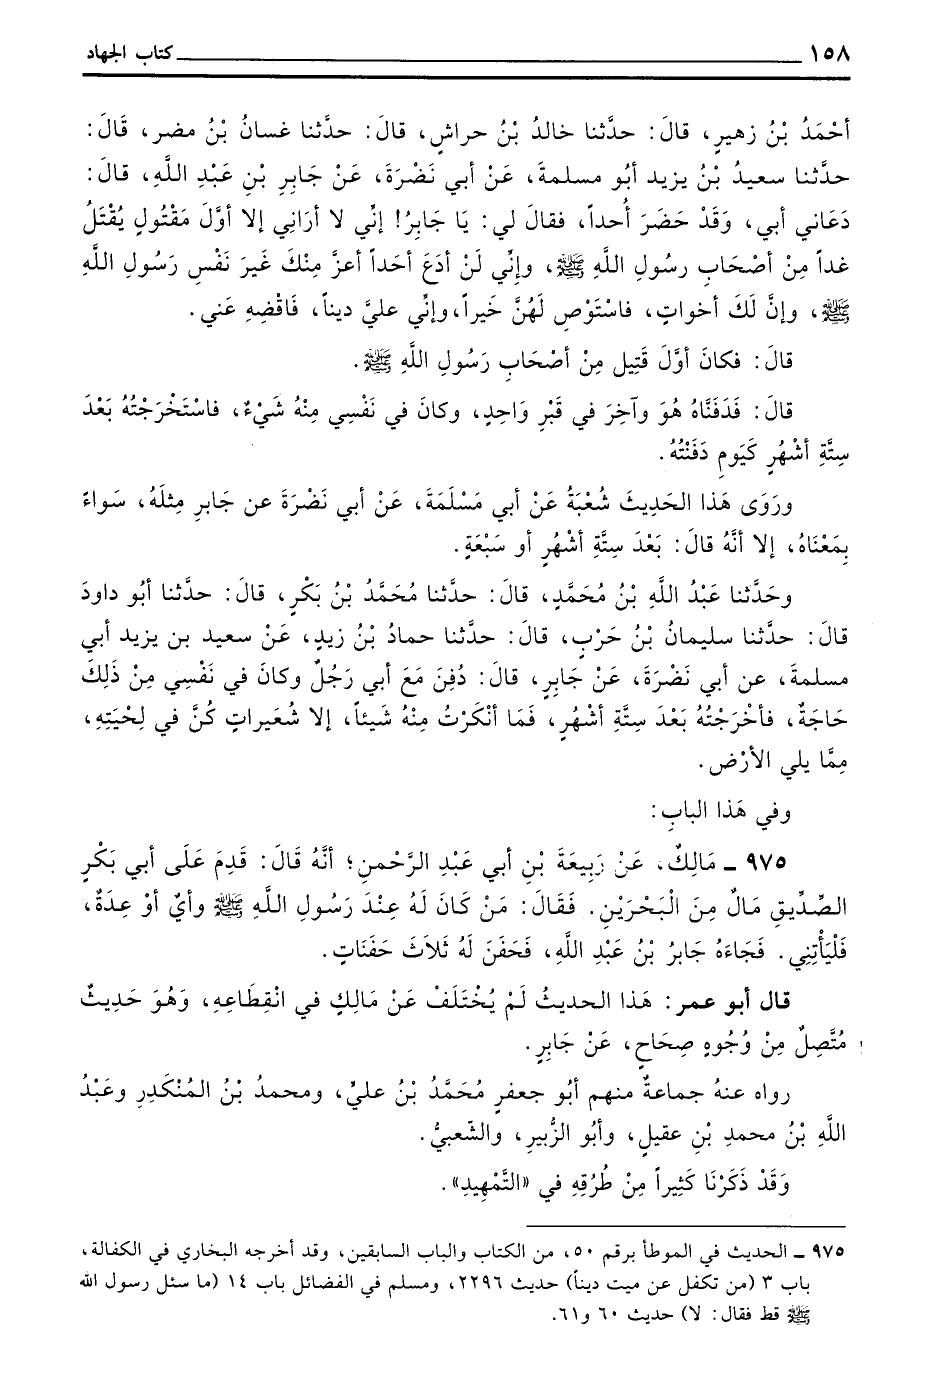 ١٥٨ كتاب الجهاد
أحْمَدُ بْنُ زهيرٍ، قالَ: حدَّثنا خالدُ بْنُ حراشٍ، قالَ: حدَّثنا غسانُ بْنُ مضر، قَالَ:
حدَّثنا سعيدُ بْنُ يزيد أبُو مسلمةَ، عَنْ أبي نَضْرَةَ، عَنْ جَابِرِ بْنِ عَبْدِ اللَّهِ، قالَ:
دَعَاني أبي، وَقَدْ حَضَرَ أُحداً، فقالَ لي: يَا جَابِرُ! إنِّي لا أرَانِي إلا أوَّلَ مَقْتُولٍ يُقْتَلُ
غداً مِنْ أصْحَابِ رسُولِ اللَّهِ ﷺ، وإنِّي لَنْ أدَعَ أحَداً أعزَّ مِنْكَ غَيرَ نَفْسِ رَسُولِ اللَّهِ
ﷺ، وإنَّ لَكَ أخواتٍ، فاسْتَوْصِ لَهُنَّ خَيراً، وإنِّي عليَّ ديناً، فَاقْضِهِ عَني.
قالَ: فكانَ أوَّلَ قَتِيلٍ مِنْ أصْحَابِ رَسُولِ اللَّهِ ﷺ.
قالَ: فَدَفَنَّاهُ هُوَ وآخِرَ في قَبْرٍ وَاحِدٍ، وكانَ في نَفْسِي مِنْهُ شَيْءٌ، فاسْتَخْرَجْتُهُ بَعْدَ
سِتَّةِ أشْهُرٍ كَيَومِ دَفَنْتُهُ.
ورَوَى هَذا الحَدِيثَ شُعْبَةُ عَنْ أبي مَسْلَمَةَ، عَنْ أبي نَضْرَةَ عن جَابرِ مِثلَهُ، سَواءً
بِمَعْنَاهُ، إلا أنَّهُ قالَ: بَعْدَ سِتَّةِ أشْهُرٍ أو سَبْعَةٍ.
وحَدَّثنا عَبْدُ اللَّهِ بْنُ مُحَمَّدٍ، قالَ: حدَّثنا مُحَمَّدُ بْنُ بَكْرٍ، قالَ: حدَّثنا أبُو داودَ
قالَ: حدَّثنا سليمانُ بْنُ حَرْبٍ، قالَ: حدَّثنا حمادُ بْنُ زيدٍ، عَنْ سعيد بن يزيد أبي
مسلمةَ، عن أبي نَضْرَةَ، عَنْ جَابِرٍ، قالَ: دُفِنَ مَعَ أبي رَجُلٌ وكانَ في نَفْسِي مِنْ ذَلِكَ
حَاجَةٌ، فأخْرَجْتُهُ بَعْدَ سِتَّةِ أشْهُرٍ، فَمَا أنْكَرْتُ مِنْهُ شَيئاً، إلا شُعَيراتٍ كُنَّ في لِحْيَتِهِ،
مِمَّا يلي الأرْض.
وفي هَذا البابِ:
٩٧٥ - مَالِكٌ، عَنْ رَبِيعَةَ بْنِ أبي عَبْدِ الرَّحْمنِ؛ أنَّهُ قَالَ: قَدِمَ عَلَى أبي بَكْرٍ
الصِّدِّيقِ مَالٌ مِنَ الْبَحْرَيْنِ. فَقَالَ: مَنْ كَانَ لَهُ عِنْدَ رَسُولِ اللَّهِ ﷺ وأيٌ أوْ عِدَةٌ،
فَلْيَأْتِنِي. فَجَاءَهُ جَابرُ بْنُ عَبْدِ اللَّهِ، فَحَفَنَ لَهُ ثَلَاثَ حَفَنَاتٍ.
قال أبو عمر: هَذا الحديثُ لَمْ يُخْتَلَفْ عَنْ مَالِكٍ في انْقِطَاعِهِ، وَهُوَ حَدِيثٌ
مُتَّصِلٌ مِنْ وُجُوهٍ صِحَاحٍ، عَنْ جَابِرٍ.
رواه عنهُ جماعةٌ منهم أبُو جعفرٍ مُحَمَّدُ بْنُ عليٍّ، ومحمدُ بْنُ المُنْكَدِرِ وعَبْدُ
اللَّهِ بْنُ محمدِ بْنِ عقيلٍ، وأبُو الزُّبيرِ، والشّعبيُّ.
وَقَدْ ذَكَرْنَا كَثِيراً مِنْ طُرُقِهِ في «التَّمْهِيدِ».
٩٧٥ - الحديث في الموطأ برقم ٥٠، من الكتاب والباب السابقين، وقد أخرجه البخاري في الكفالة،
باب ٣ (من تكفل عن ميت ديناً) حديث ٢٢٩٦، ومسلم في الفضائل باب ١٤ (ما سئل رسول الله
ﷺ قط فقال: لا) حديث ٦٠ و٦١.